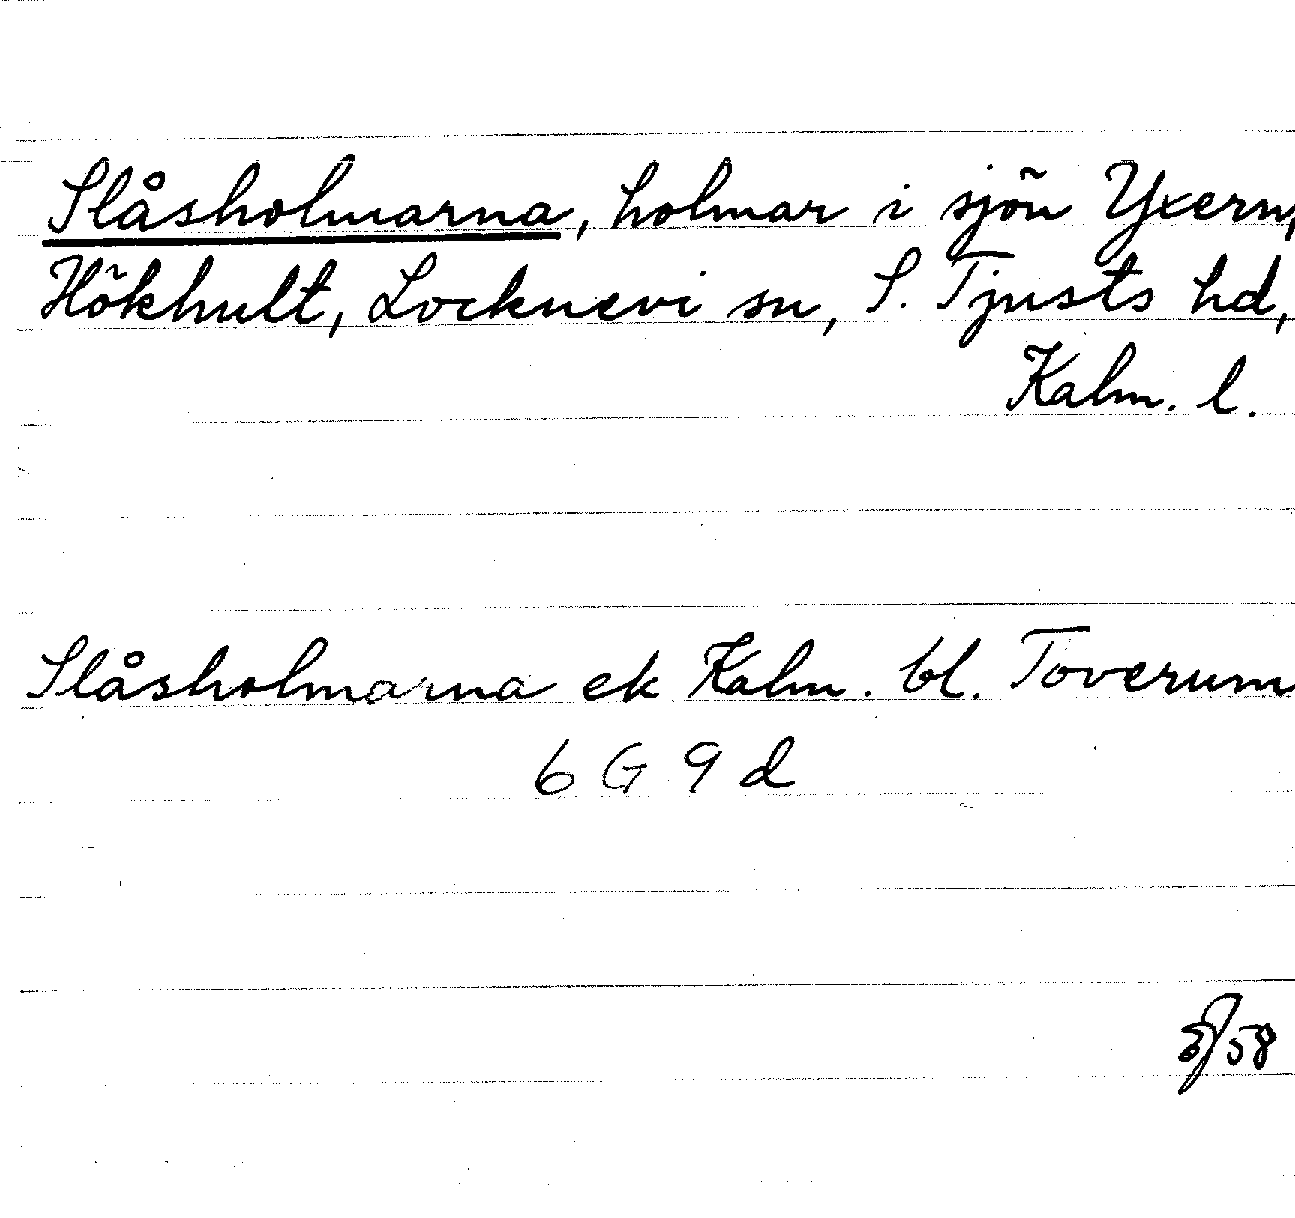 Slåsholmarna, holmar i sjön Yxern,
Hökhult, Locknevi sn, S. Tjusts hd,
Kalm. l.
Slåsholmarna ek Kalm. bl. Toverum
6 G 9 d
/58